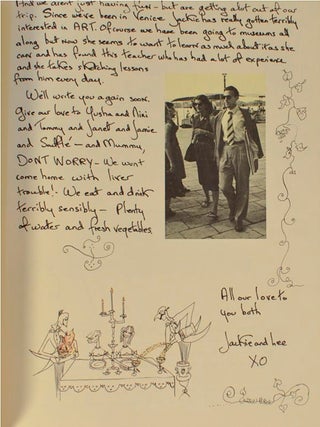 that we aren't just having fun - but are getting alot out of our
trip. Since we've been in Venice Jackie has really gotten terribly
interested in ART. Of course we have been going to museums all
along but now she seems to want to learn as much about it as she
can and has found this teacher who has had a lot of experience
and she takes sketching lessons
from him every day.
We'll write you again soon.
Give our love to Yusha and Nini
and Tommy and Janet and Jamie
and Sufflé - and Mummy,
DONT WORRY - We wont
come home with liver
trouble! - We eat and drink
terribly sensibly - Plenty
of water and fresh vegetables.
All our love to
you both
Jackie and Lee
XO